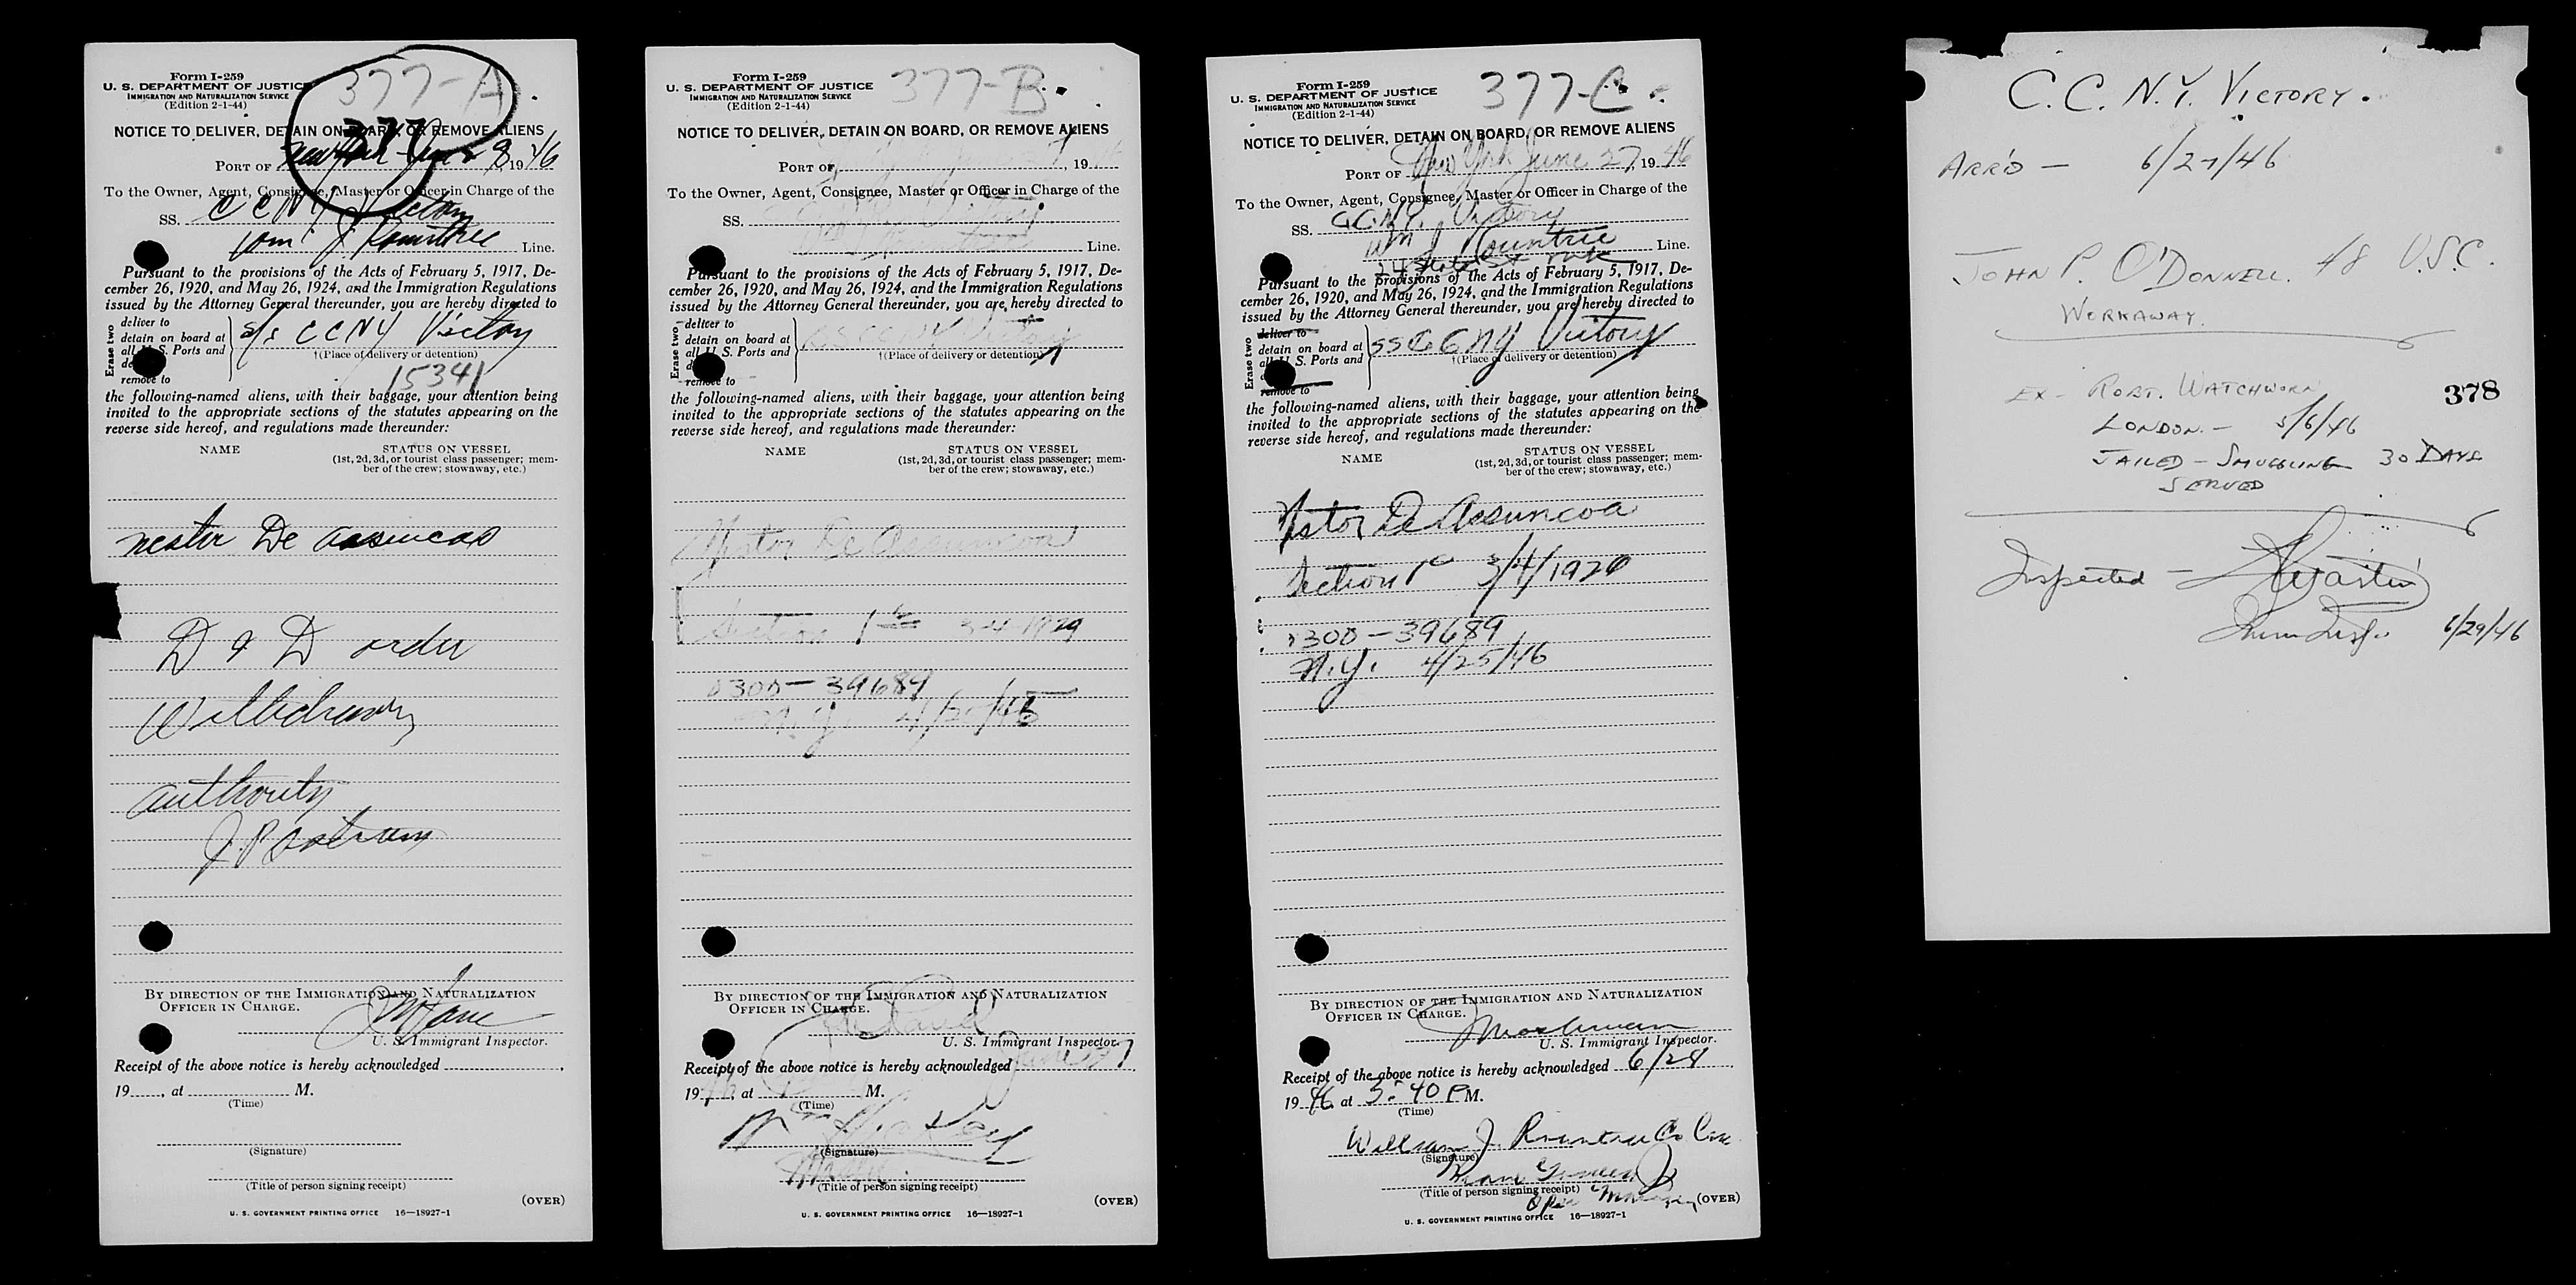 Form I-259
U. S. DEPARTMENT OF JUSTICE
IMMIGRATION AND NATURALIZATION SERVICE
(Edition 2-1-44)
377-A
377
NOTICE TO DELIVER, DETAIN ON BOARD, OR REMOVE ALIENS
PORT OF New York 1946
To the Owner, Agent, Consignee, Master or Officer in Charge of the
SS. CCNY Victory
J. Rountree Line.
Pursuant to the provisions of the Acts of February 5, 1917, De-
cember 26, 1920, and May 26, 1924, and the Immigration Regulations
issued by the Attorney General thereunder, you are hereby directed to
Erase two
deliver to
detain on board at
all U. S. Ports and
remove to
s/s CCNY Victory
†(Place of delivery or detention)
15341
the following-named aliens, with their baggage, your attention being
invited to the appropriate sections of the statutes appearing on the
reverse side hereof, and regulations made thereunder:
NAME
STATUS ON VESSEL
(1st, 2d, 3d, or tourist class passenger; mem-
ber of the crew; stowaway, etc.)
Nestor De
D & D order
Withdrawn
authority
BY DIRECTION OF THE IMMIGRATION AND NATURALIZATION
OFFICER IN CHARGE.
U. S. Immigrant Inspector.
Receipt of the above notice is hereby acknowledged
19 , at M.
(Time)
(Signature)
(Title of person signing receipt)
(OVER)
U. S. GOVERNMENT PRINTING OFFICE 16—18927-1
Form I-259
U. S. DEPARTMENT OF JUSTICE
IMMIGRATION AND NATURALIZATION SERVICE
(Edition 2-1-44)
377-B
NOTICE TO DELIVER, DETAIN ON BOARD, OR REMOVE ALIENS
PORT OF , 19
To the Owner, Agent, Consignee, Master or Officer in Charge of the
SS. Victory
Line.
Pursuant to the provisions of the Acts of February 5, 1917, De-
cember 26, 1920, and May 26, 1924, and the Immigration Regulations
issued by the Attorney General thereunder, you are hereby directed to
Erase two
deliver to
detain on board at
all U. S. Ports and
remove to
SS CCNY Victory
†(Place of delivery or detention)
the following-named aliens, with their baggage, your attention being
invited to the appropriate sections of the statutes appearing on the
reverse side hereof, and regulations made thereunder:
NAME
STATUS ON VESSEL
(1st, 2d, 3d, or tourist class passenger; mem-
ber of the crew; stowaway, etc.)
Nstor De Assuncoa
Section 1 3-4-1929
0300-39689
N.Y. 4/25/46
BY DIRECTION OF THE IMMIGRATION AND NATURALIZATION
OFFICER IN CHARGE.
U. S. Immigrant Inspector.
Receipt of the above notice is hereby acknowledged June 27
1946, at M.
(Time)
(Signature)
(Title of person signing receipt)
(OVER)
U. S. GOVERNMENT PRINTING OFFICE 16—18927-1
Form I-259
U. S. DEPARTMENT OF JUSTICE
IMMIGRATION AND NATURALIZATION SERVICE
(Edition 2-1-44)
377-C
NOTICE TO DELIVER, DETAIN ON BOARD, OR REMOVE ALIENS
PORT OF New York June 27, 1946
To the Owner, Agent, Consignee, Master or Officer in Charge of the
SS. C.C.N.Y. Victory
Wm J Rountree Line.
24 State St
Pursuant to the provisions of the Acts of February 5, 1917, De-
cember 26, 1920, and May 26, 1924, and the Immigration Regulations
issued by the Attorney General thereunder, you are hereby directed to
Erase two
deliver to
detain on board at
all U. S. Ports and
remove to
SS CCNY Victory
†(Place of delivery or detention)
the following-named aliens, with their baggage, your attention being
invited to the appropriate sections of the statutes appearing on the
reverse side hereof, and regulations made thereunder:
NAME
STATUS ON VESSEL
(1st, 2d, 3d, or tourist class passenger; mem-
ber of the crew; stowaway, etc.)
Nstor De Assuncoa
Section 1 3/4/1929
0300-39689
N.Y. 4/25/46
BY DIRECTION OF THE IMMIGRATION AND NATURALIZATION
OFFICER IN CHARGE.
U. S. Immigrant Inspector.
Receipt of the above notice is hereby acknowledged 6/28
1946, at 3:40 P M.
(Time)
William J. Rountree Co Inc
(Signature)
(Title of person signing receipt)
(OVER)
U. S. GOVERNMENT PRINTING OFFICE 16—18927-1
C.C.N.Y. VICTORY.
ARR'D — 6/27/46
JOHN P. O'DONNELL. 48 U.S.C.
WORKAWAY
EX- ROBT. WATCHWORN
378
LONDON. — 5/6/46
JAILED — SMUGGLING 30 DAYS
SERVED
Inspected —
6/29/46